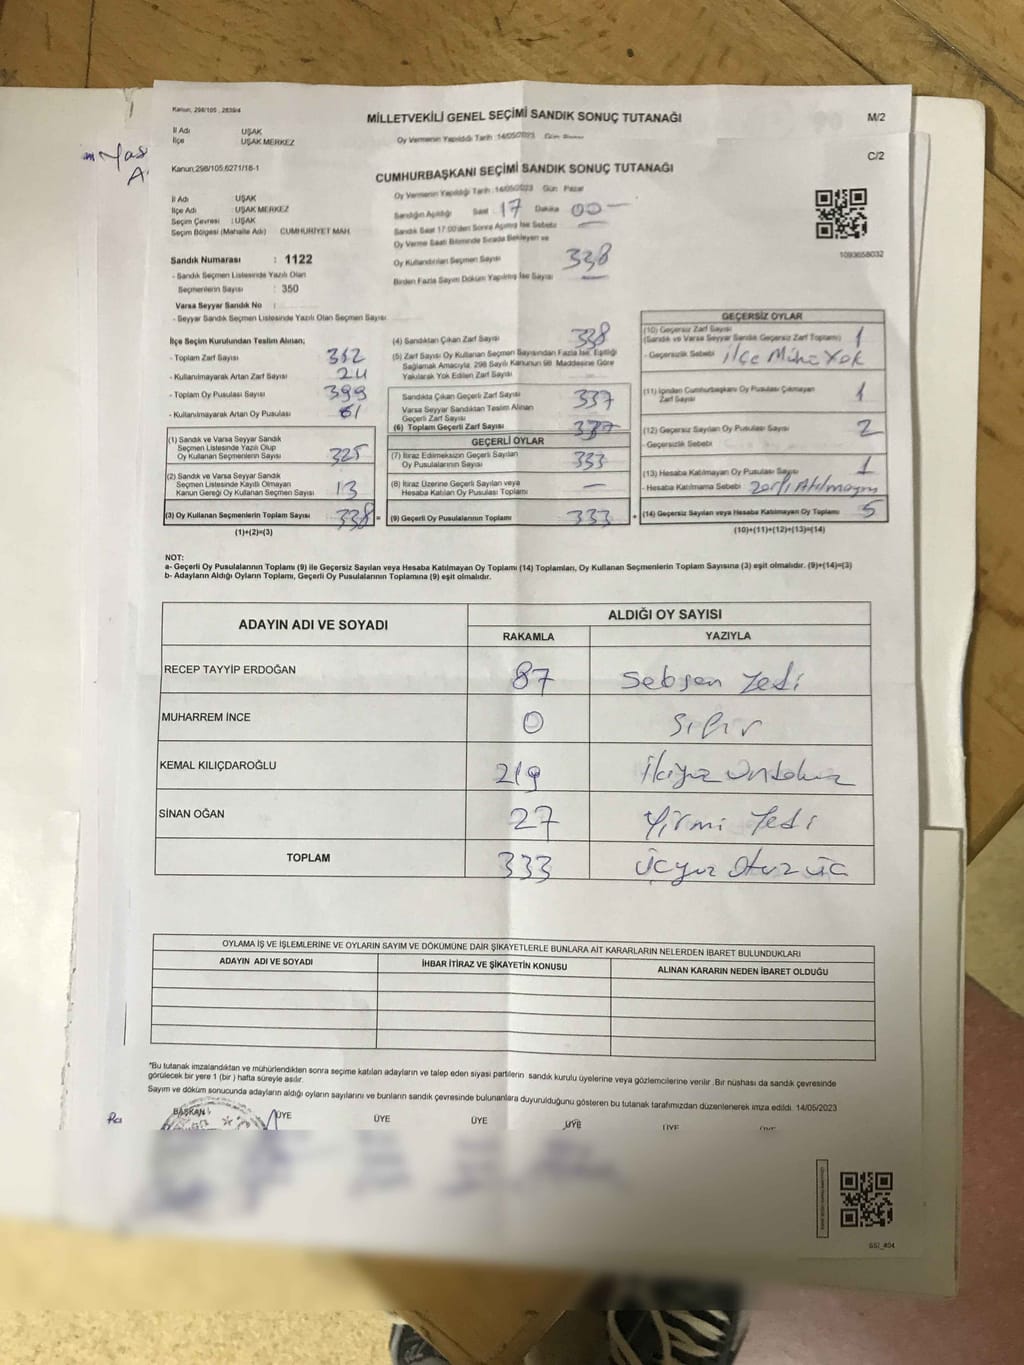 Kanun, 298/105 , 2839/4
MİLLETVEKİLİ GENEL SEÇİMİ SANDIK SONUÇ TUTANAĞI
M/2
İl Adı UŞAK
İlçe UŞAK MERKEZ
Oy Vermenin Yapıldığı Tarih :14/05/2023 Gün
C/2
Kanun,298/105,6271/16-1
CUMHURBAŞKANI SEÇİMİ SANDIK SONUÇ TUTANAĞI
Oy Vermenin Yapıldığı Tarih :14/05/2023 Gün Pazar
İl Adı : UŞAK
İlçe Adı : UŞAK MERKEZ
Seçim Çevresi : UŞAK
Seçim Bölgesi (Mahalle Adı) CUMHURİYET MAH.
Sandığın Açıldığı Saat : 17 Dakika 00 —
Sandık Saat 17:00'den Sonra Açılmış İse Sebebi —
Oy Verme Saati Bitiminde Sırada Bekleyen ve
Oy Kullandırılan Seçmen Sayısı 338
Birden Fazla Sayım Döküm Yapılmış İse Sayısı —
1093658032
Sandık Numarası : 1122
- Sandık Seçmen Listesinde Yazılı Olan
Seçmenlerin Sayısı : 350
Varsa Seyyar Sandık No :
- Seyyar Sandık Seçmen Listesinde Yazılı Olan Seçmen Sayısı
İlçe Seçim Kurulundan Teslim Alınan;
- Toplam Zarf Sayısı
- Kullanılmayarak Artan Zarf Sayısı 24
- Toplam Oy Pusulası Sayısı 399
- Kullanılmayarak Artan Oy Pusulası 61
(1) Sandık ve Varsa Seyyar Sandık
Seçmen Listesinde Yazılı Olup
Oy Kullanan Seçmenlerin Sayısı 325
(2) Sandık ve Varsa Seyyar Sandık
Seçmen Listesinde Kayıtlı Olmayan
Kanun Gereği Oy Kullanan Seçmen Sayısı 13
(3) Oy Kullanan Seçmenlerin Toplam Sayısı 338 =
(1)+(2)=(3)
(4) Sandıktan Çıkan Zarf Sayısı 338
(5) Zarf Sayısı Oy Kullanan Seçmen Sayısından Fazla İse, Eşitliği
Sağlamak Amacıyla; 298 Sayılı Kanunun 98. Maddesine Göre
Yakılarak Yok Edilen Zarf Sayısı
Sandıkta Çıkan Geçerli Zarf Sayısı 337
Varsa Seyyar Sandıktan Teslim Alınan
Geçerli Zarf Sayısı
(6) Toplam Geçerli Zarf Sayısı 337
GEÇERLİ OYLAR
(7) İtiraz Edilmeksizin Geçerli Sayılan
Oy Pusulalarının Sayısı 333
(8) İtiraz Üzerine Geçerli Sayılan veya
Hesaba Katılan Oy Pusulası Toplamı —
(9) Geçerli Oy Pusulalarının Toplamı 333 +
GEÇERSİZ OYLAR
(10) Geçersiz Zarf Sayısı
(Sandık ve Varsa Seyyar Sandık Geçersiz Zarf Toplamı) 1
- Geçersizlik Sebebi : İlçe Mühü Yok
(11) İçinden Cumhurbaşkanı Oy Pusulası Çıkmayan
Zarf Sayısı 1
(12) Geçersiz Sayılan Oy Pusulası Sayısı 2
- Geçersizlik Sebebi
(13) Hesaba Katılmayan Oy Pusulası Sayısı 1
- Hesaba Katılmama Sebebi
(14) Geçersiz Sayılan veya Hesaba Katılmayan Oy Toplamı 5
(10)+(11)+(12)+(13)=(14)
NOT:
a- Geçerli Oy Pusulalarının Toplamı (9) ile Geçersiz Sayılan veya Hesaba Katılmayan Oy Toplamı (14) Toplamları, Oy Kullanan Seçmenlerin Toplam Sayısına (3) eşit olmalıdır. (9)+(14)=(3)
b- Adayların Aldığı Oyların Toplamı, Geçerli Oy Pusulalarının Toplamına (9) eşit olmalıdır.
ADAYIN ADI VE SOYADI
ALDIĞI OY SAYISI
RAKAMLA YAZIYLA
RECEP TAYYİP ERDOĞAN 87 Seksen Yedi
MUHARREM İNCE 0 Sıfır
KEMAL KILIÇDAROĞLU 219 İkiyüz Ondokuz
SİNAN OĞAN 27 Yirmi Yedi
TOPLAM 333 Üçyüz Otuz üç
OYLAMA İŞ VE İŞLEMLERİNE VE OYLARIN SAYIM VE DÖKÜMÜNE DAİR ŞİKAYETLERLE BUNLARA AİT KARARLARIN NELERDEN İBARET BULUNDUKLARI
ADAYIN ADI VE SOYADI İHBAR İTİRAZ VE ŞİKAYETİN KONUSU ALINAN KARARIN NEDEN İBARET OLDUĞU
*Bu tutanak imzalandıktan ve mühürlendikten sonra seçime katılan adayların ve talep eden siyasi partilerin sandık kurulu üyelerine veya gözlemcilerine verilir .Bir nüshası da sandık çevresinde
görülecek bir yere 1 (bir ) hafta süreyle asılır.
Sayım ve döküm sonucunda adayların aldığı oyların sayılarını ve bunların sandık çevresinde bulunanlara duyurulduğunu gösteren bu tutanak tarafımızdan düzenlenerek imza edildi. 14/05/2023
BAŞKAN ÜYE ÜYE ÜYE ÜYE ÜYE